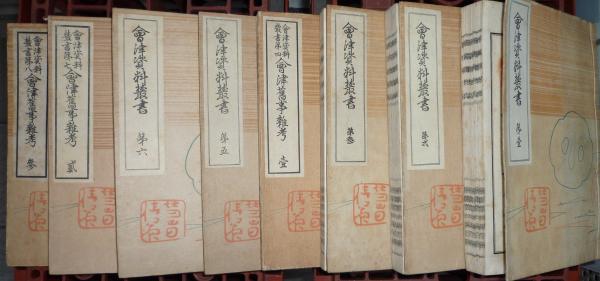 會津資料叢書 第壹
會津資料叢書 第弐
會津資料叢書 第参
會津資料叢書第四 會津舊事雜考 壹
會津資料叢書 第五
會津資料叢書 第六
會津資料叢書第七 會津舊事雜考 貳
會津資料叢書第八 會津舊事雜考 參